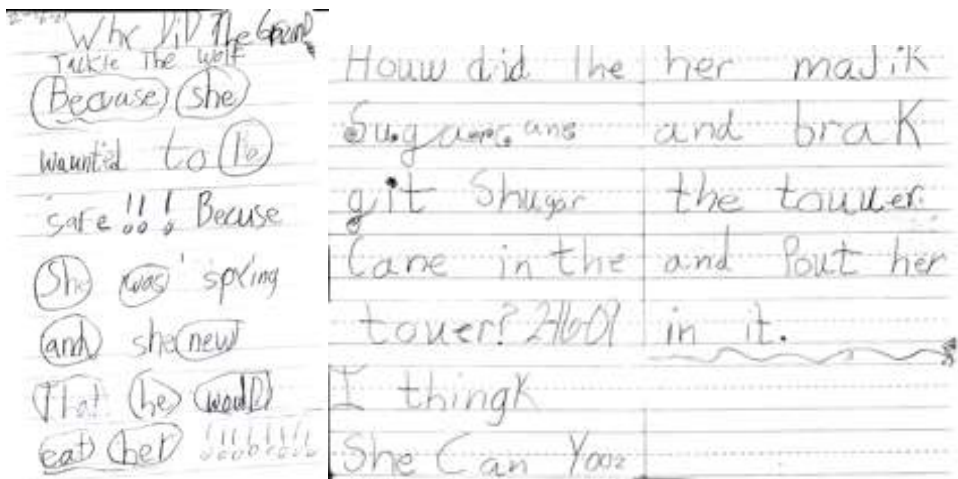 Why DiD The Grand
Tackle The wolf
Becuase she
wauntid to be
safe !!! Becuse
She was spying
and she new
That he would
eat her !!!!!!!!
Houw did the
Sugar cans
git Shugar
Cane in the
touer? 2-16-01
I thingk
She Can Yooz
her maJik
and braK
the touwer.
and Pout her
in it.